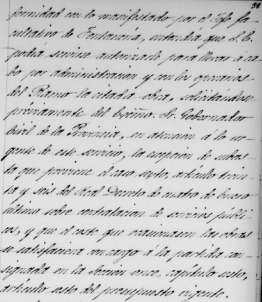 formidad con lo manifestado por el Jefe fa-
cultativo de Fontanería, entendía que S. E.
podía servirse autorizarle para llevar á ca-
bo por administracion y con los operarios
del Ramo la citada obra, solicitándose
préviamente del Excmo. Sr. Gobernador
Civil de la Provincia, en atencion á lo ur-
gente de este servicio, la excepcion de subas-
ta que previene el caso sexto, artículo trein-
ta y seis del Real Decreto de cuatro de Enero
último sobre contratacion de servicios públi-
cos, y que el coste que ocasionasen las obras
se satisfaciera con cargo á la partida con-
signada en la Seccion once, capítulo sexto,
artículo sexto del presupuesto vigente.